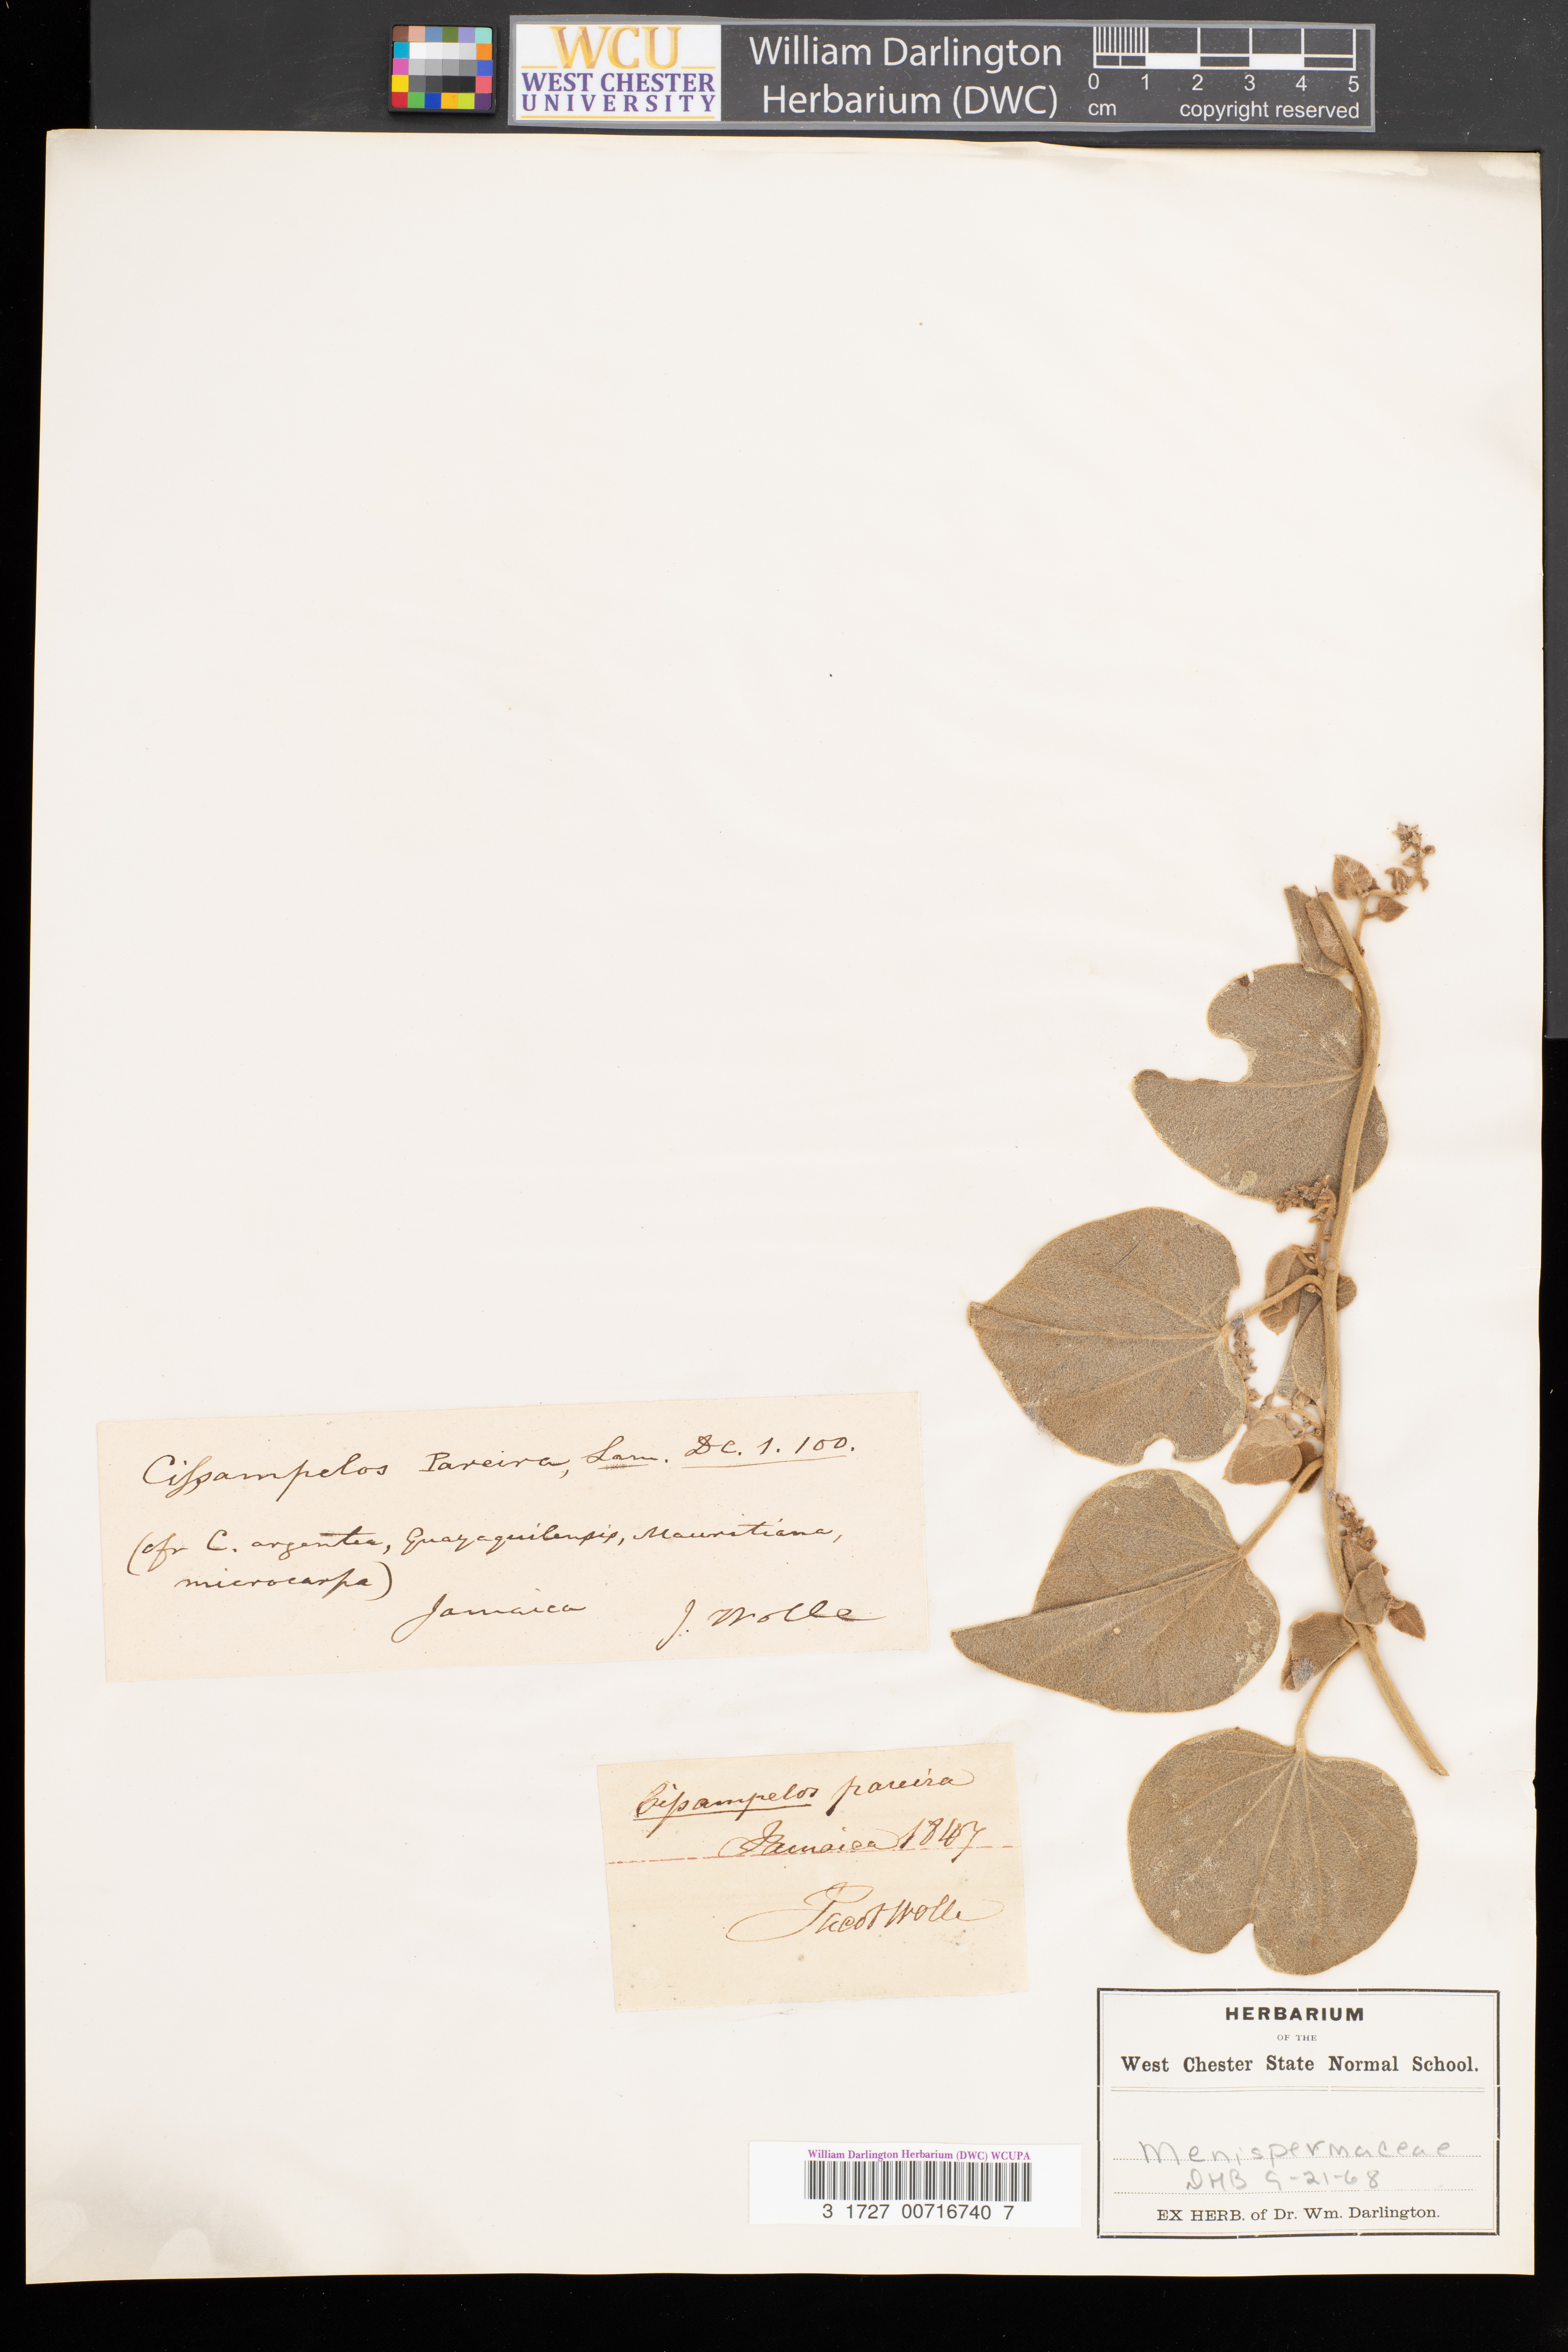 WCU
WEST CHESTER
UNIVERSITY
William Darlington
Herbarium (DWC)
0 1 2 3 4 5
cm copyright reserved
Cißampelos Pareira, Lam. DC. 1. 100.
(cfr C. argentea, Guayaquilensis, Mauritiana,
microcarpa)
Jamaica J. Wolle
Cißampelos pareira
Jamaica 1847
Jacob Wolle
HERBARIUM
OF THE
West Chester State Normal School.
Menispermaceae
DHB 9-21-68
EX HERB. of Dr. Wm. Darlington.
William Darlington Herbarium (DWC) WCUPA
3 1727 00716740 7